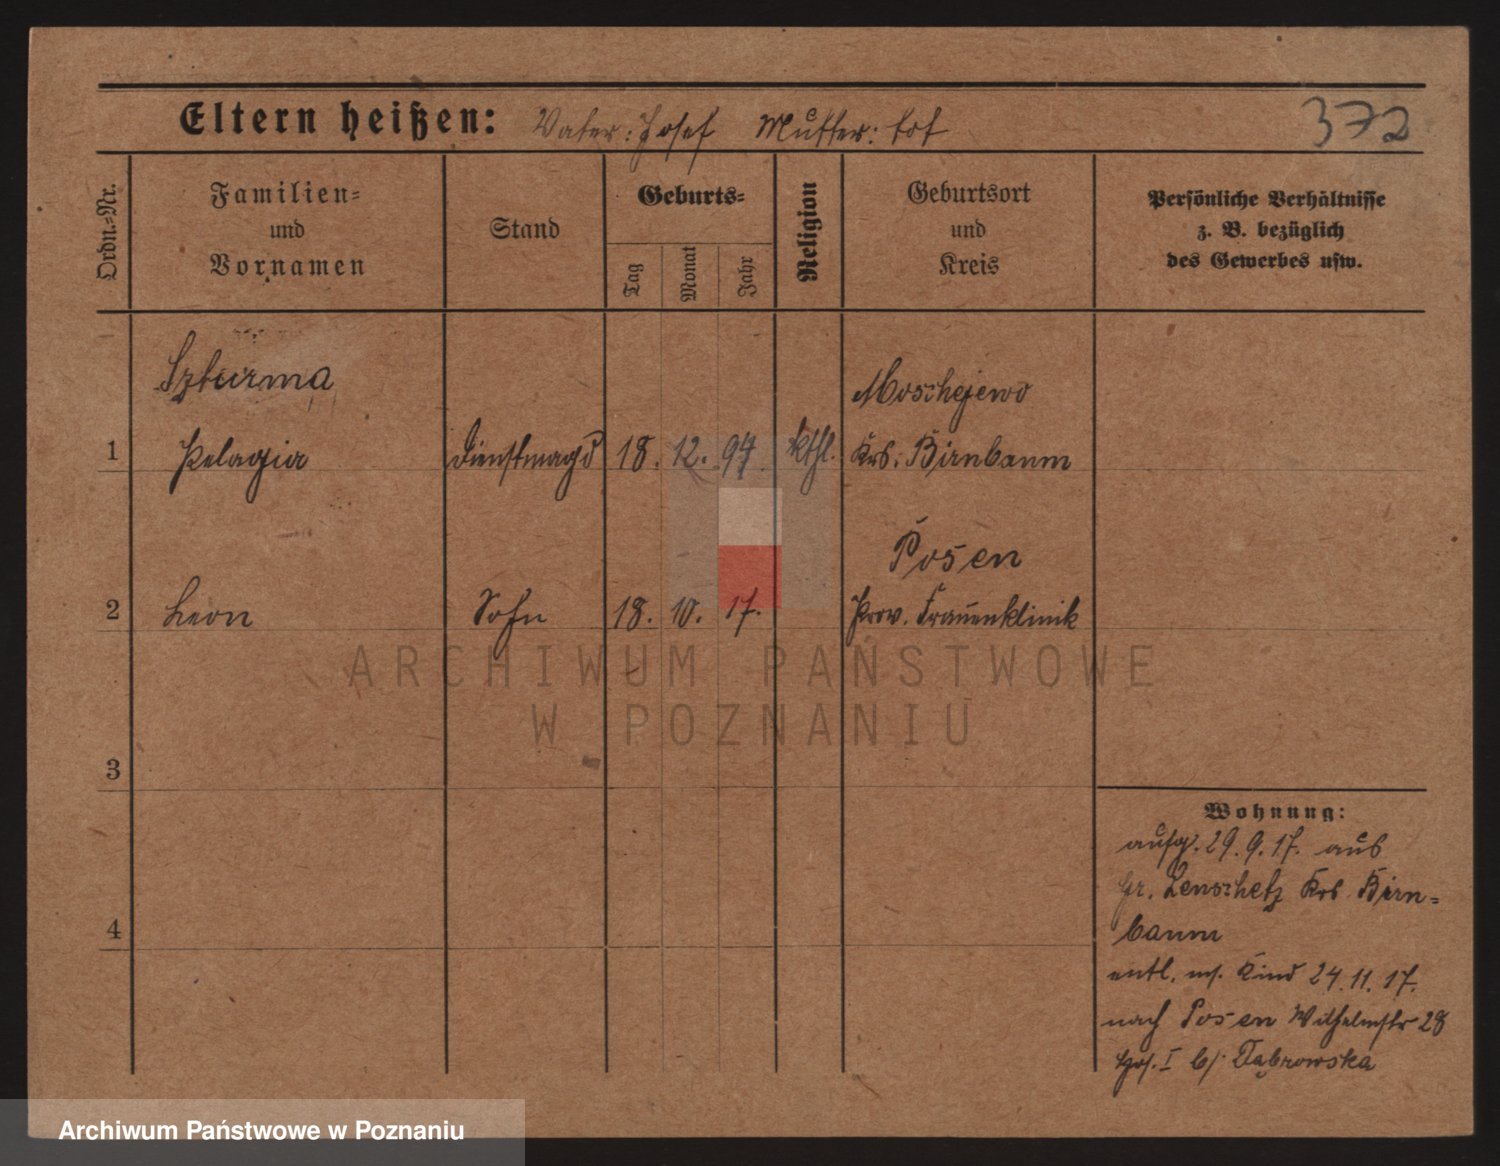 Eltern heißen: Vater: Josef Mutter: tot
372
Ordn.-Nr.
Familien-
und
Vornamen
Stand
Geburts-
Tag
Monat
Jahr
Religion
Geburtsort
und
Kreis
Persönliche Verhältnisse
z. B. bezüglich
des Gewerbes usw.
Szturma
Moschejewo
1 Pelagia Dienstmagd 18. 12. 94 kthl. Krs. Birnbaum
Posen
2 Leon Sohn 18. 10. 17. Prov. Frauenklinik
ARCHIWUM PAŃSTWOWE
W POZNANIU
3
4
Wohnung:
aufg. 29. 9. 17. aus
Gr. Lenschetz Krs Birn-
baum
entl. m. Kind 24. 11. 17.
nach Posen Wilhelmstr 28
I b/ Dąbrowska
Archiwum Państwowe w Poznaniu